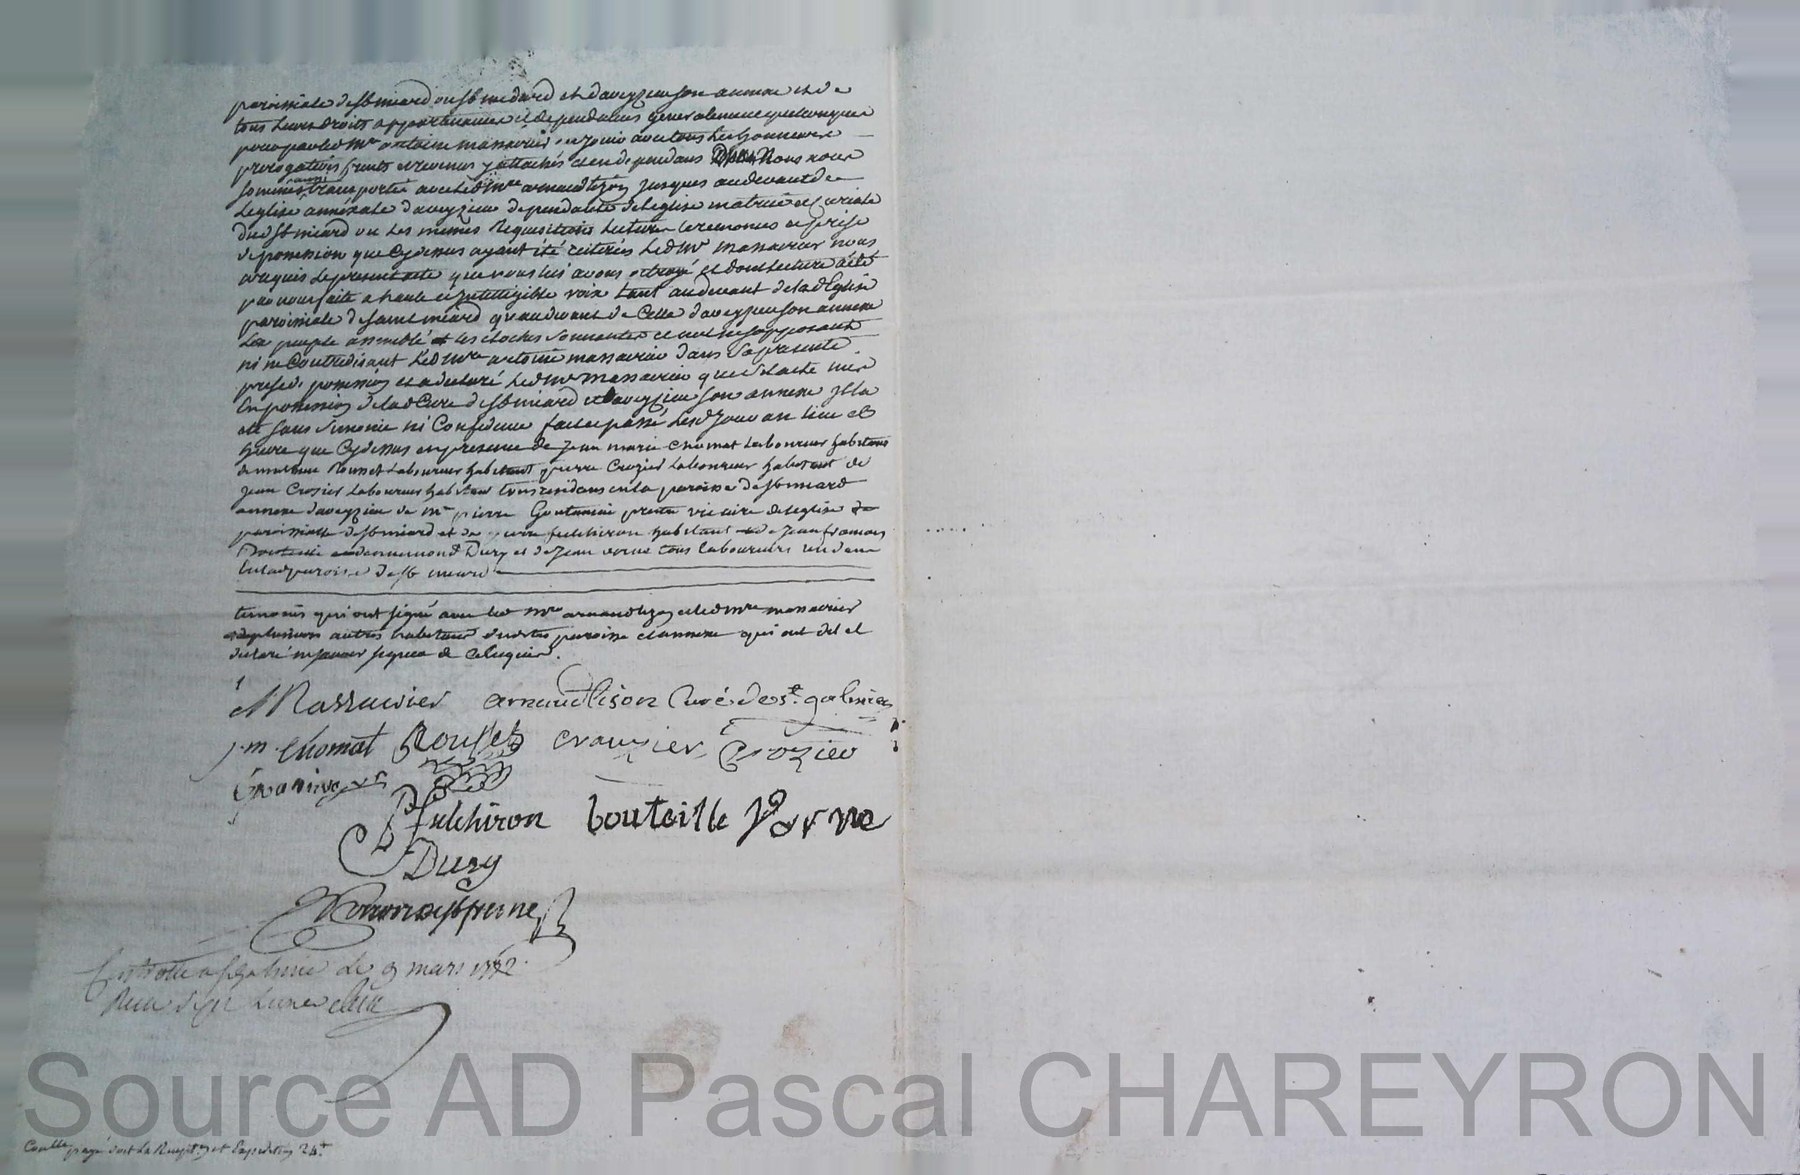 paroissiale de St miard ou St medard et daveyzieu son annexe et de
tous leurs droits appartenances et dependances generalement quelconques
pour par led Mre antoine massavier en jouir avec tous les honneurs
prerogatives fruits et revenus y attachés et en dependans Nous nous
sommes aussi transportés avec led Mre arnaudtizon jusques audevant de
Leglise annexale daveyzieu dependante de leglise matrice et curiale
dud St miard ou les memes requisitions lecture ceremonies et prise
de possession que cy dessus ayant été reiterés led Mre massavier nous
a requis le present acte que nous lui avons octroyé et dont lecture a été
par nous faite a haute et intelligible voix tant audevant de lad Eglise
paroissiale de saint miard quaudevant de celle daveyzieu son annexe
Le peuple assemblé et les cloches sonnantes et nul ne sopposant
ni ne contredisant led Mre antoine massavier dans sa presente
prise de possession et a declaré led Mre massavier que s'il a été mis
en possession de lad Cure de St miard et daveyzieu son annexe il la
été sans simonie ni confidence fait et passé lesd jour an lieu et
heure que cy dessus en presence de jean marie chomat laboureur habitant
de rousset laboureur habitant pierre Crozier laboureur habitant de
jean Crozier laboureur habitant tous residans en la paroisse de St miard
annexe daveyzieu de Mre pierre pretre vicaire de leglise
paroissialle de St miard et de pierre fulchiron habitant de jean françois
Bouteille Dury et de jean verne tous laboureurs
en lad paroisse de St miard
temoins qui ont signé avec led Mre arnaudtizon et led Mre massavier
et plusieurs autres habitans desdites paroisse et annexe qui ont dit et
declaré ne savoir signer de ce enquis.
Massavier arnaudtison Curé de St. galmier
j.m. chomat Rousset crouzier Crozier
fulchiron bouteille Verne
Dury
Controllé a St galmier le 9 mars 1772
Source AD Pascal CHAREYRON